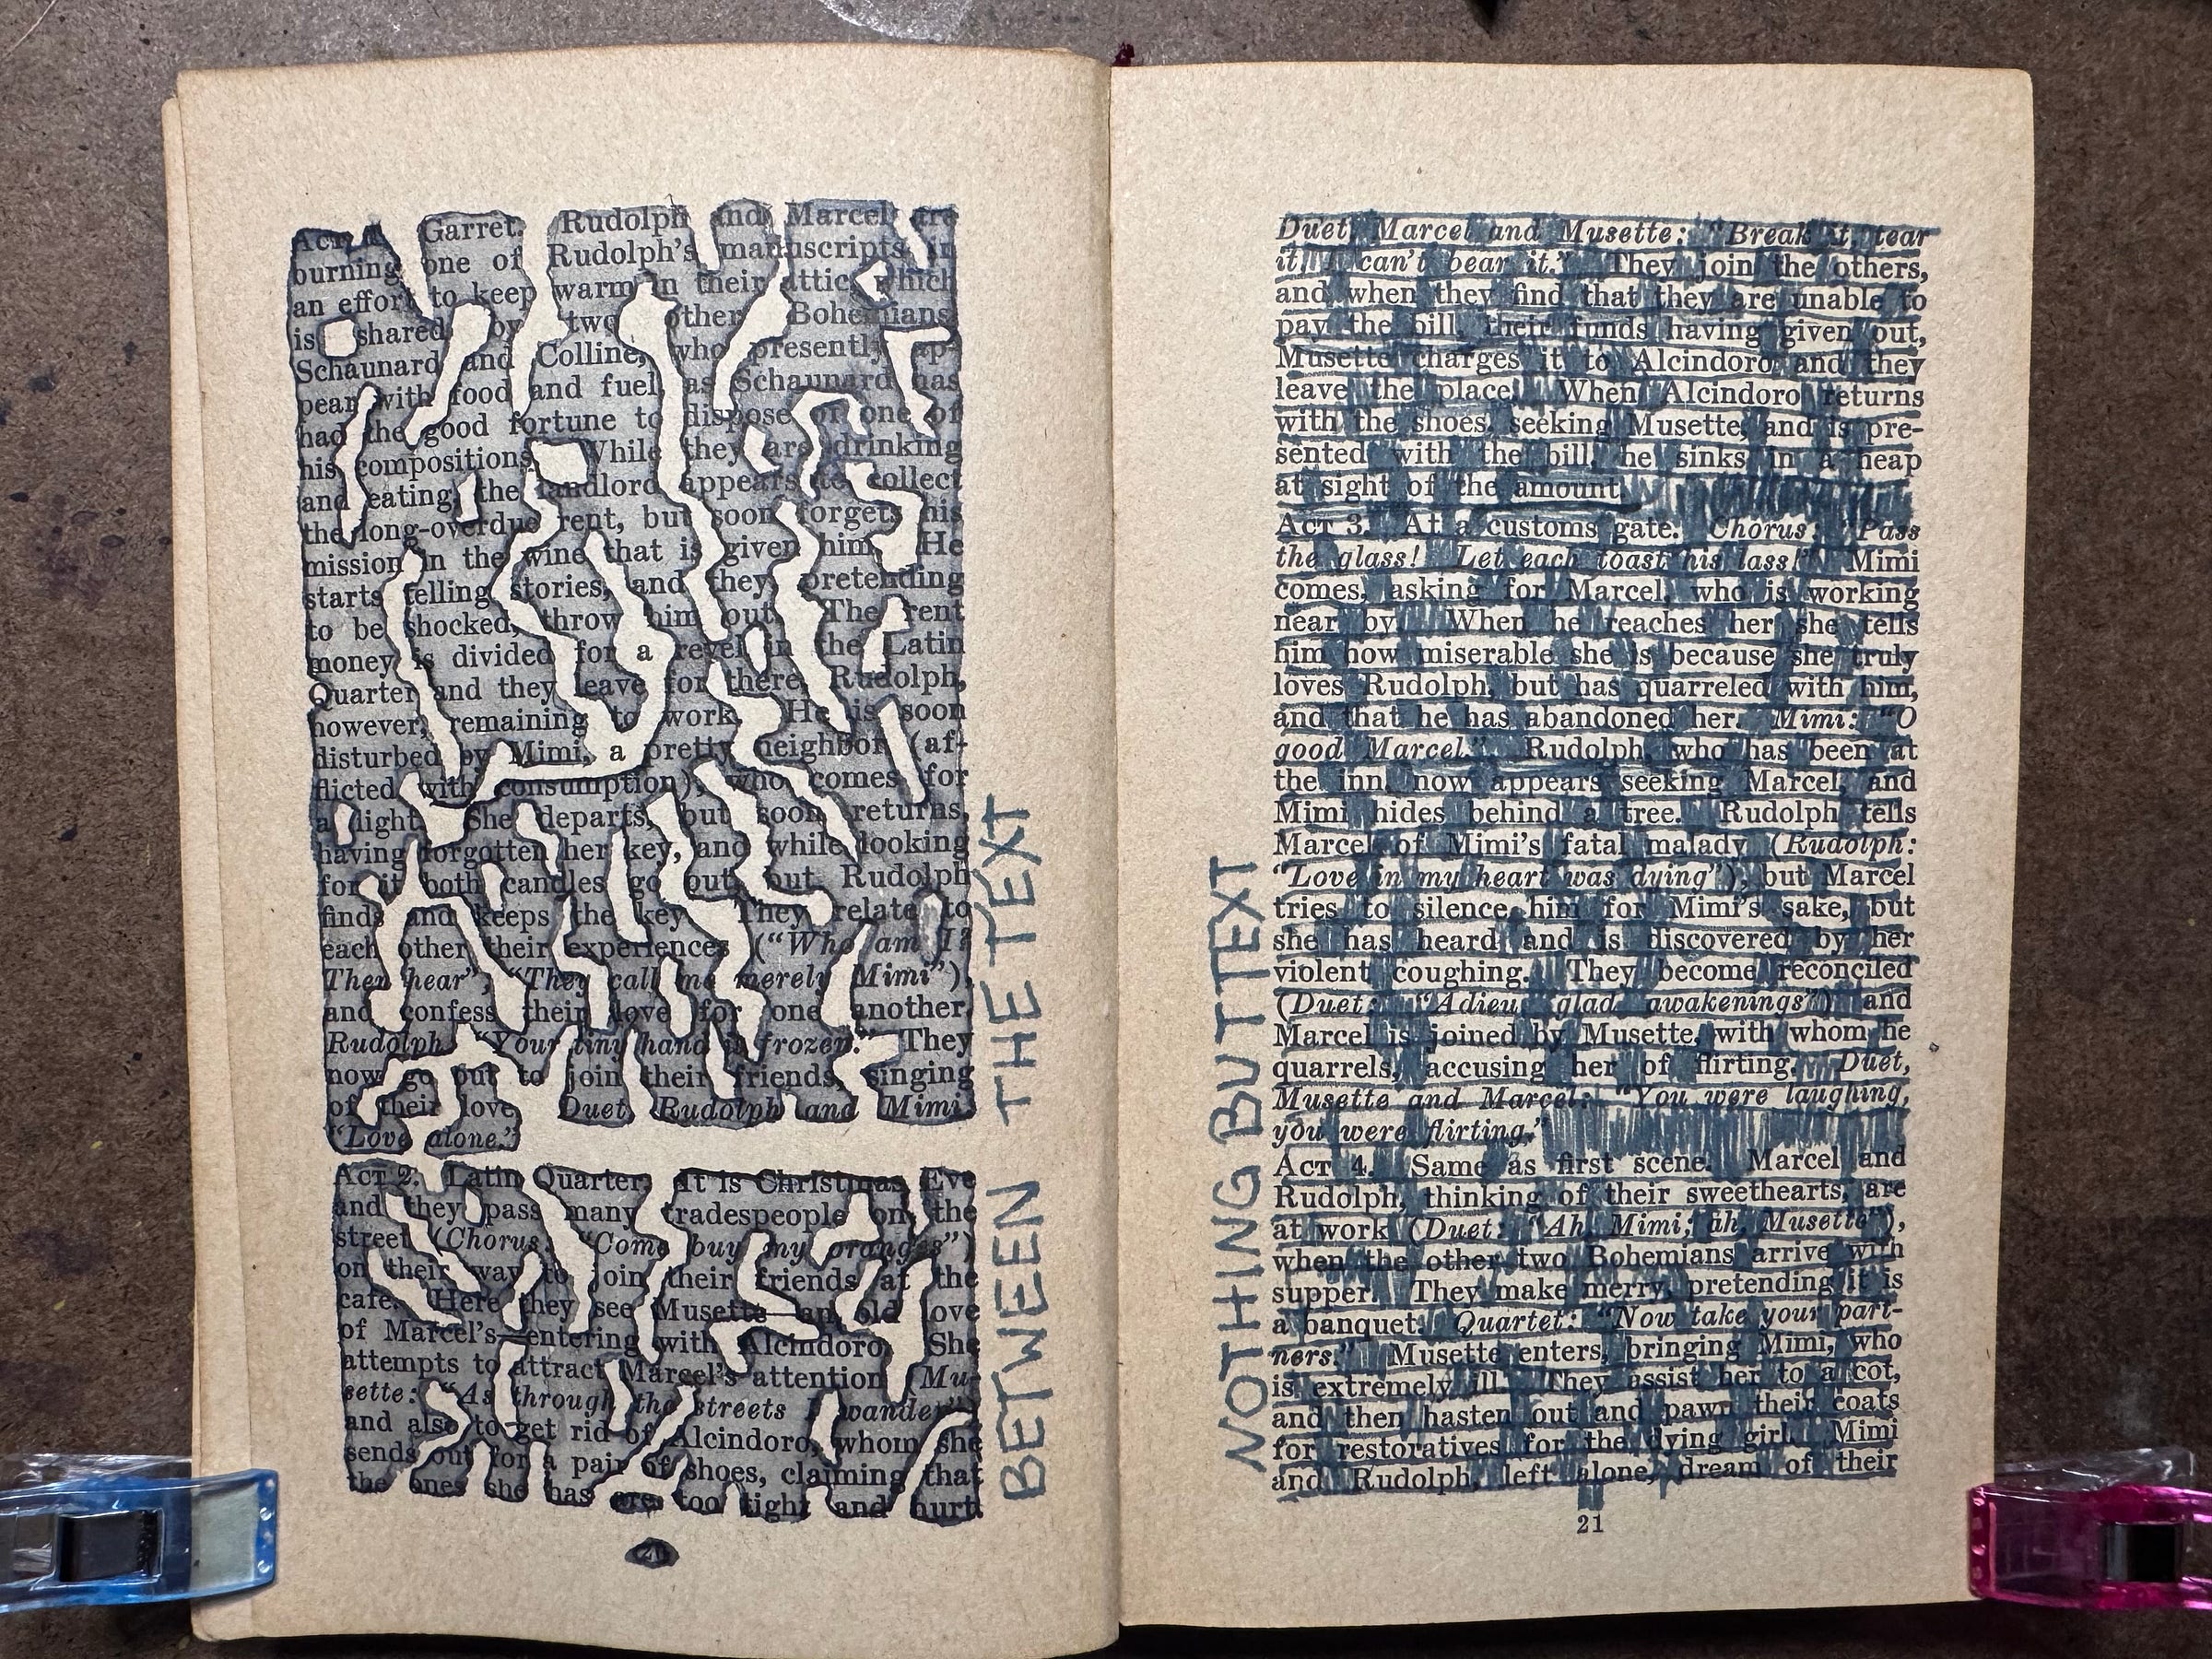 Act 1. Garret. Rudolph and Marcel are
burning one of Rudolph's manuscripts in
an effort to keep warm in their attic which
is shared by two other Bohemians,
Schaunard and Colline, who presently ap-
pear with food and fuel as Schaunard has
had the good fortune to dispose of one of
his compositions. While they are drinking
and eating, the landlord appears to collect
the long-overdue rent, but soon forgets his
mission in the wine that is given him. He
starts telling stories, and they, pretending
to be shocked, throw him out. The rent
money is divided for a revel in the Latin
Quarter and they leave for there, Rudolph,
however, remaining to work. He is soon
disturbed by Mimi, a pretty neighbor (af-
flicted with consumption), who comes for
a light. She departs, but soon returns,
having forgotten her key, and while looking
for it both candles go out, but Rudolph
finds and keeps the key. They relate to
each other their experiences ("Who am I?
Then hear", "They call me merely Mimi"),
and confess their love for one another.
Rudolph: "Your tiny hand is frozen." They
now go out to join their friends, singing
of their love. Duet, Rudolph and Mimi:
"Love alone."
Act 2. Latin Quarter. It is Christmas Eve
and they pass many tradespeople on the
street (Chorus: "Come buy my oranges")
on their way to join their friends at the
cafe. Here they see Musette—an old love
of Marcel's—entering with Alcindoro. She
attempts to attract Marcel's attention (Mu-
sette: "As through the streets I wander")
and also to get rid of Alcindoro, whom she
sends out for a pair of shoes, claiming that
the ones she has are too tight and hurt.
20
BETWEEN THE TEXT
NOTHING BUT TEXT
Duet, Marcel and Musette: "Break it, tear
it, I can't bear it." They join the others,
and when they find that they are unable to
pay the bill, their funds having given out,
Musette charges it to Alcindoro and they
leave the place. When Alcindoro returns
with the shoes, seeking Musette, and is pre-
sented with the bill, he sinks in a heap
at sight of the amount.
Act 3. At a customs gate. Chorus: "Pass
the glass! Let each toast his lass!" Mimi
comes, asking for Marcel, who is working
near by. When he reaches her she tells
him how miserable she is because she truly
loves Rudolph, but has quarreled with him,
and that he has abandoned her. Mimi: "O
good Marcel." Rudolph, who has been at
the inn, now appears seeking Marcel, and
Mimi hides behind a tree. Rudolph tells
Marcel of Mimi's fatal malady (Rudolph:
"Love in my heart was dying"), but Marcel
tries to silence him for Mimi's sake, but
she has heard and is discovered by her
violent coughing. They become reconciled
(Duet: "Adieu, glad awakenings") and
Marcel is joined by Musette, with whom he
quarrels, accusing her of flirting. Duet,
Musette and Marcel: "You were laughing,
you were flirting."
Act 4. Same as first scene. Marcel and
Rudolph, thinking of their sweethearts, are
at work (Duet: "Ah, Mimi; ah, Musette"),
when the other two Bohemians arrive with
supper. They make merry, pretending it is
a banquet. Quartet: "Now take your part-
ners." Musette enters, bringing Mimi, who
is extremely ill. They assist her to a cot,
and then hasten out and pawn their coats
for restoratives for the dying girl. Mimi
and Rudolph, left alone, dream of their
21